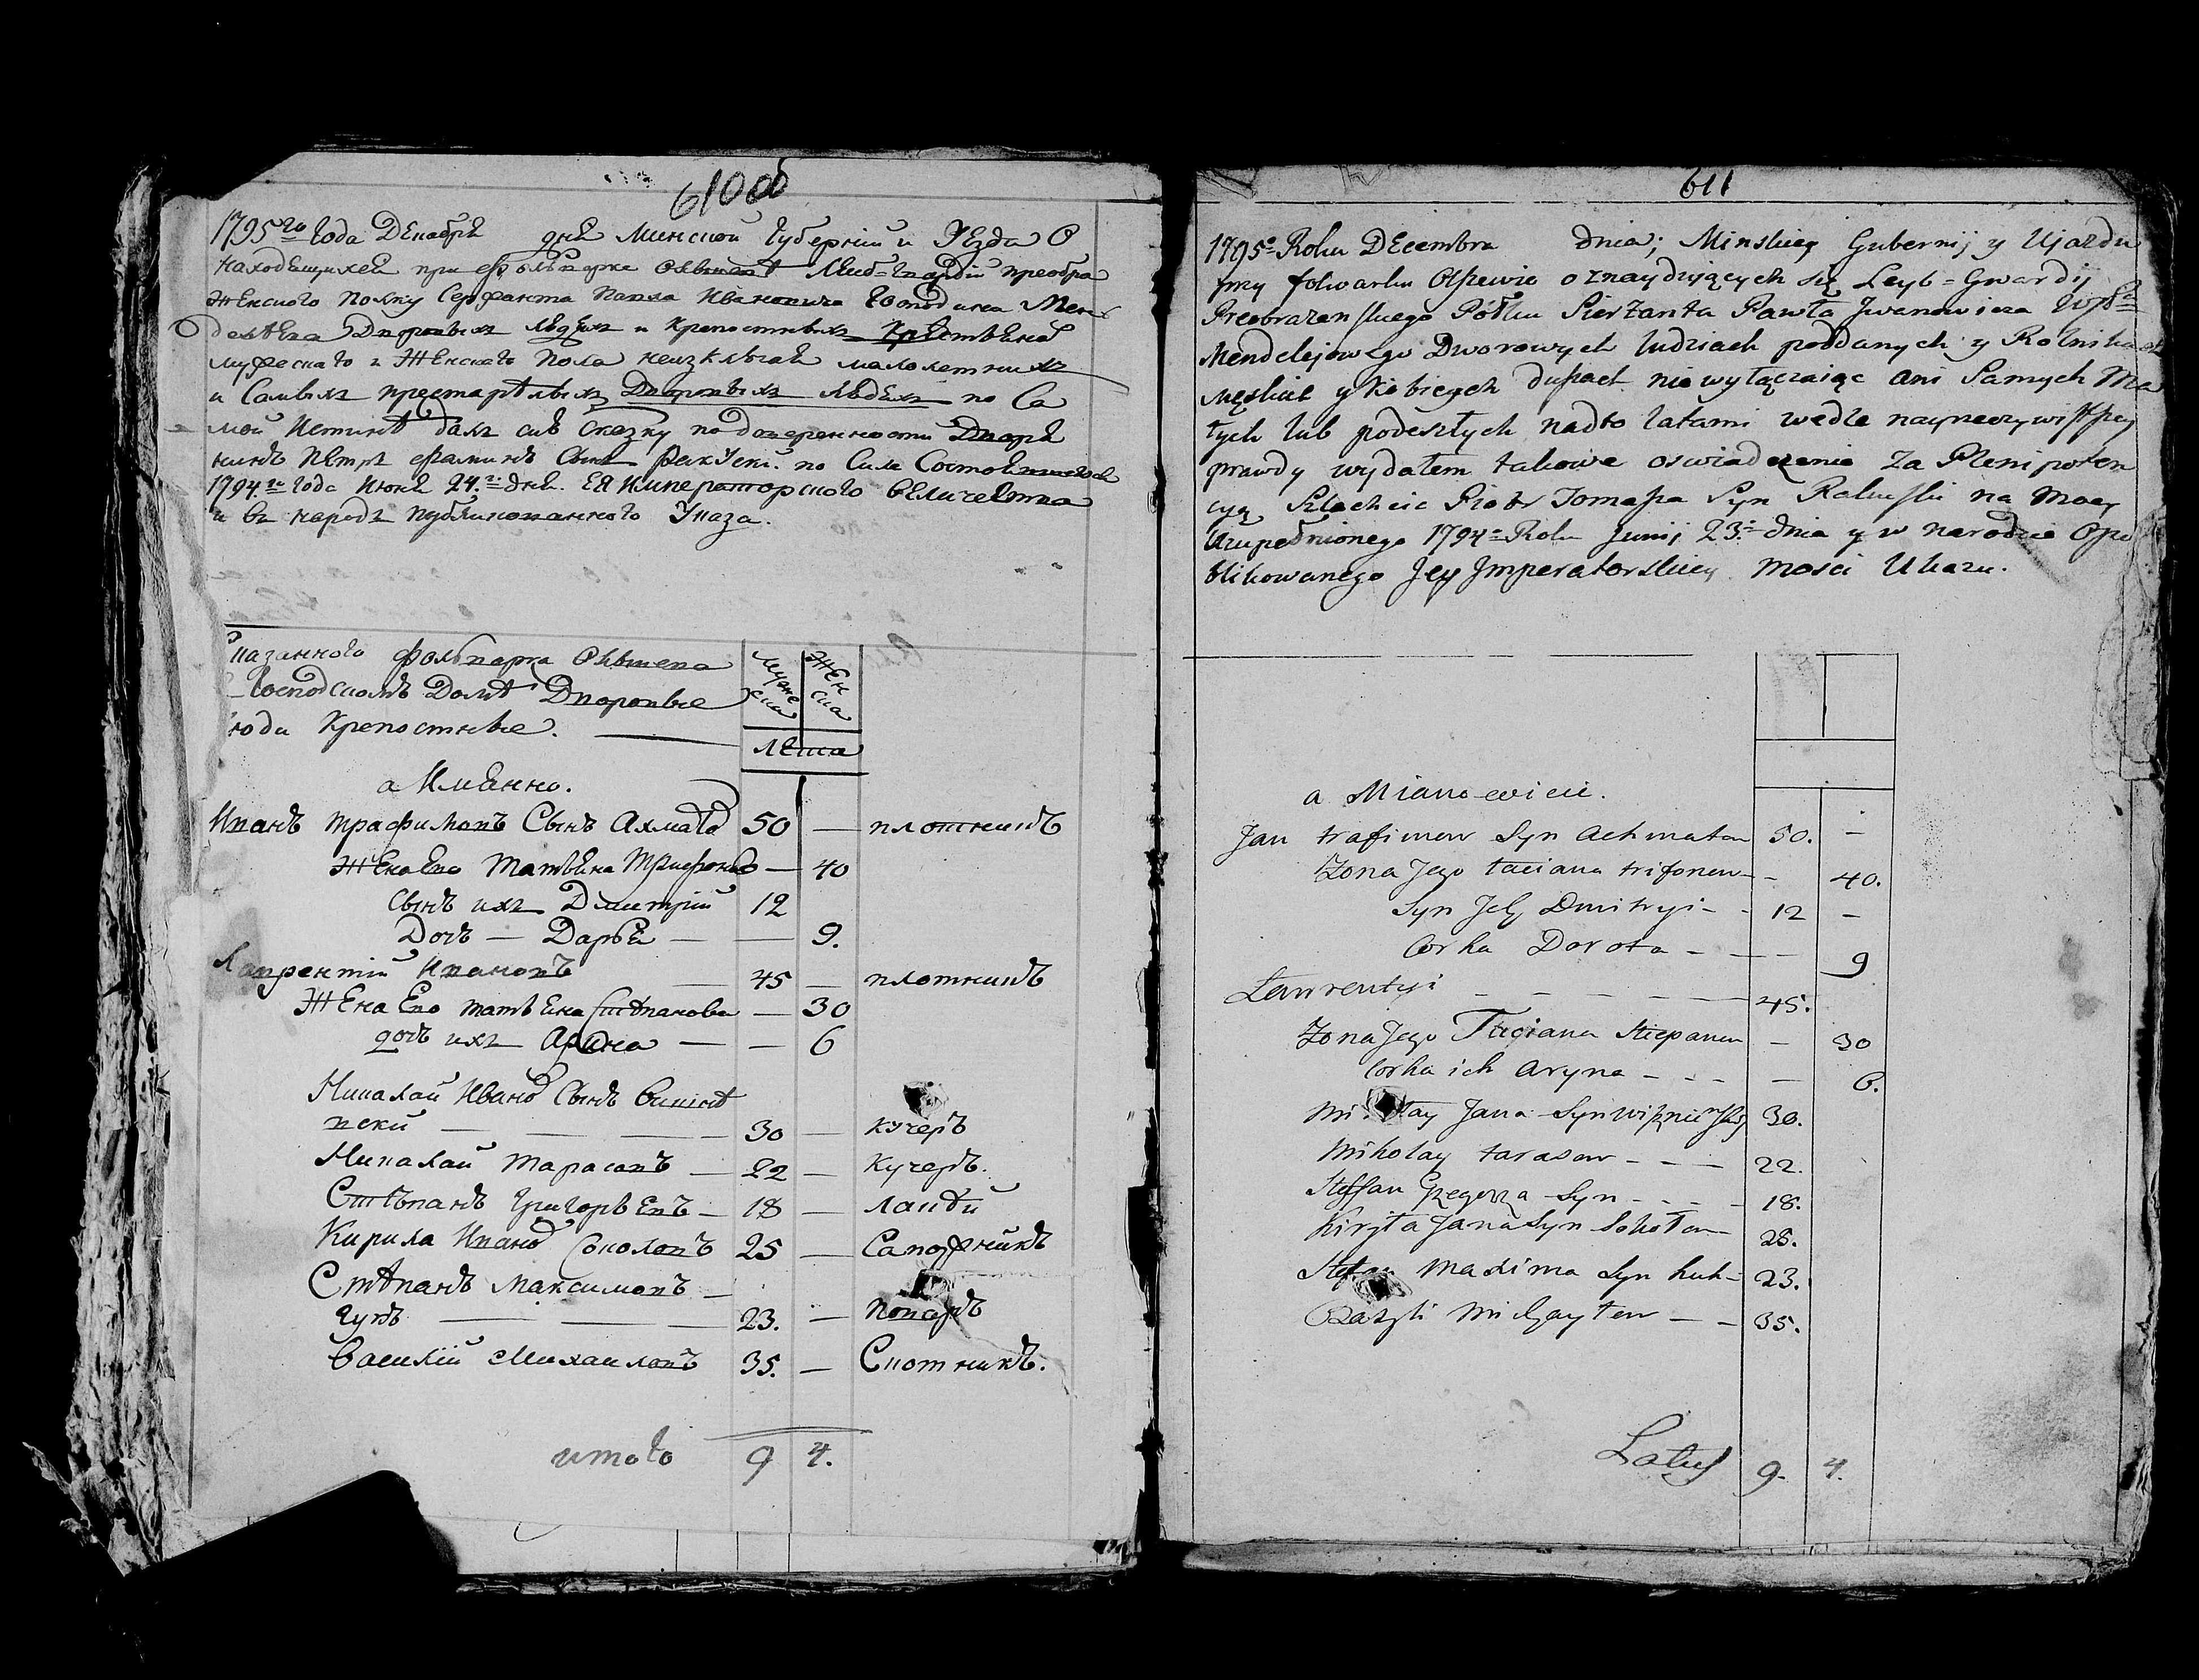 610 об
1795го Года Декабря дня Минской Губернии и Уезда О
находящихся при фольварке Олышеве Лейб-гвардии преобра
женского полку Сержанта Павла Ивановича Господина Мен
делеева Дворовых людех и крепостных крестьяна
мужеского и женского пола неизключая малолетних
и Самых престарелых Дворовых людех по Са
мой Истине дал сию Сказку по доверенности Дворя
нинъ Петръ Фоминъ Сынъ по Силе
1794го Года Июня 24го дня. ЕЯ Императорского Величества
и въ народъ публикованного Указа.
казанного фольварка Олышева
Господскомъ Доме Дворовые
юди Крепостные.
Мужеска
Женска
Лета
а Имянно.
Иванъ Трафимовъ Сынъ Ахматов 50 — плотникъ
Жена Ево Татьяна Трифонов — 40
Сынъ ихъ Дмитрий 12
Дочь — Дарья — — 9.
Лаврентий Ивановъ — 45 — плотникъ
Жена Ево Татьяна Степанова — 30
дочь ихъ Арина — — 6
Николай Ивановъ Сынъ Вишне
вски — — — 30 — кучеръ
Николай Тарасовъ — 22 — Кучеръ.
Степанъ Григорьевъ — 18 — Лакей
Кирила Иванов Соколовъ 25 — Сапожникъ
Степанъ Максимовъ —
гунъ — — 23. — Поваръ
Василий Михаиловъ 35. — Скотникъ.
итого 9 4.
611
1795o Roku Decembra dnia; Minskiey Gubernij y Ujazdu
przy folwarku Olszewie o znayduiących się Leyb-Gwardij
Preobrazenskiego Półku Sierżanta Pawła Jwanowicza
Mendelejowego Dworowych ludziach poddanych y Rolnikach
męskich y kobiecych duszach nie wyłączaiąc ani Samych Ma
łych lub podeszłych nadto latami wedle nayrzeczywistszey
prawdy wydałem takowe oswiadczenie za Plenipoten
cyą Szlachcic Piotr Tomasza Syn na Mocy
Uzupełnionego 1794o Roku Junij 23. dnia y w narodzie Opu
blikowanego Jey Jmperatorskiey Mosci Ukazu.
a Mianowicie.
Jan trafimow Syn Achmatow 50. —
Żona Jego taciana trifonow — 40.
Syn Jch Dmitryi - - 12 —
Corka Dorota - - — 9
Lawrentyi — — — — 45.
Żona Jego Taciana Stiepanow — 30
Corka ich Aryna - - - — 6.
Mi ay Jana Syn Wiszniewski 30.
Mikolay tarasow - - — 22.
Steffan Grzegorza Syn - - - 18.
Kiryła Jana Syn Sokołow 25.
Stefan Maxima Syn huh- 23.
Bazyli Michayłow — — 35.
Latus 9. 4.